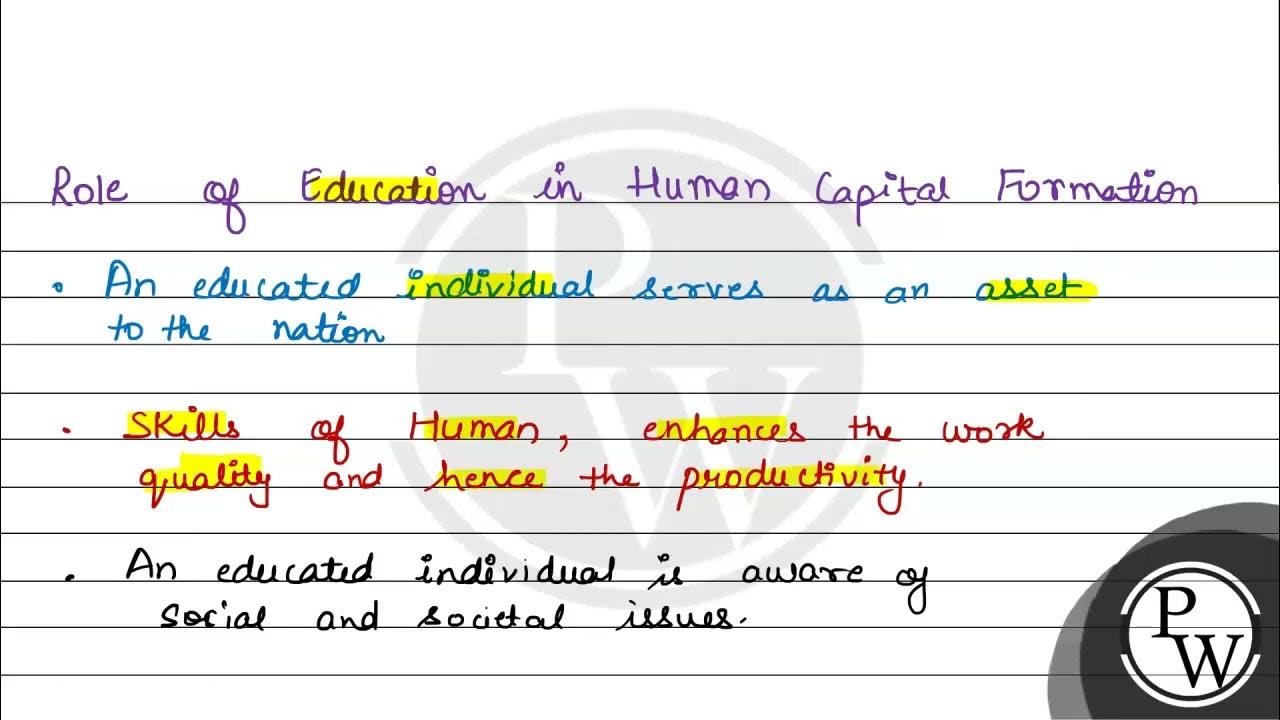 Role of Education in Human Capital Formation
• An educated individual serves as an asset
to the nation
• Skills of Human, enhances the work
quality and hence the productivity.
• An educated individual is aware of
social and societal issues.
PW
PW